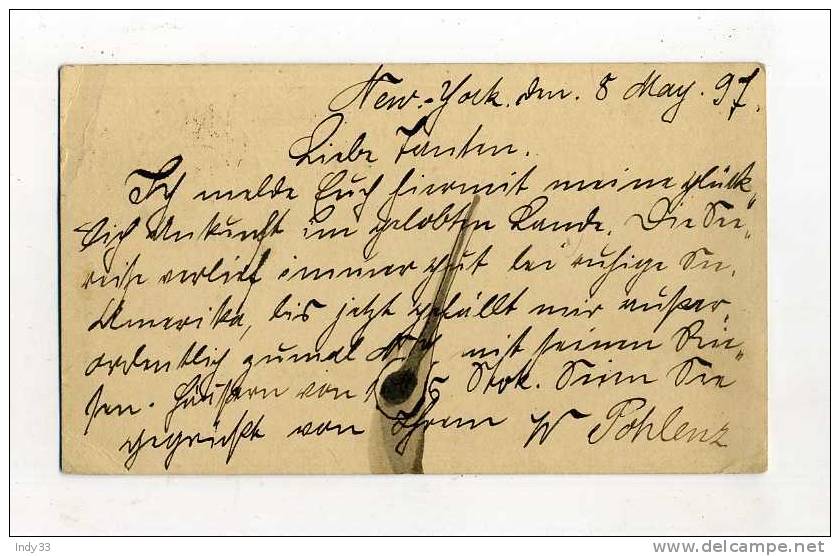 New-York. den. 8 May. 97.
Liebe Tanten.
Ich melde Euch hiermit meine glück-
lich Ankunft im gelobten Lande. Die See-
reise verlief immer gut bei ruhige See.
Amerika, bis jetzt gefällt mir außer-
ordentlich zumal mit seinen Rie-
sen-Häusern von Stok. Seien Sie
gegrüßt von Ihrem W Pohlenz
Indy33
www.delcampe.net